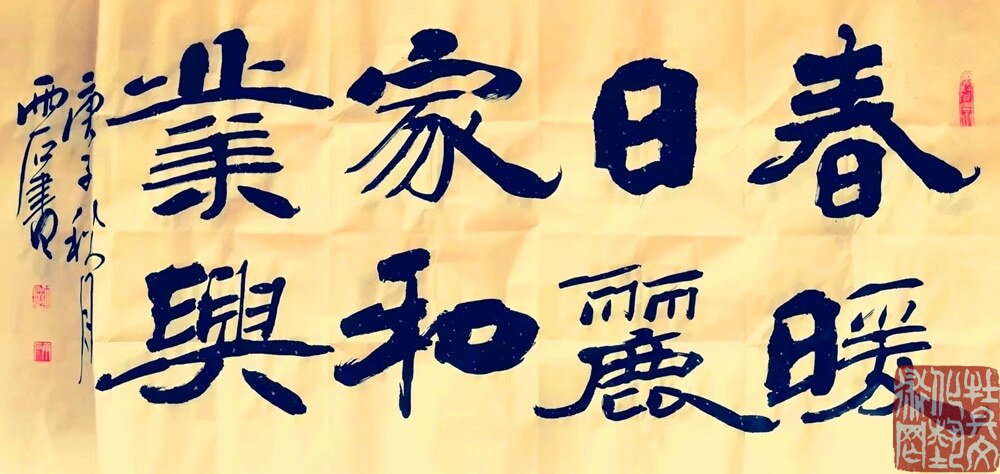 春暖
日麗
家和
業興
庚子秋月
雨石書